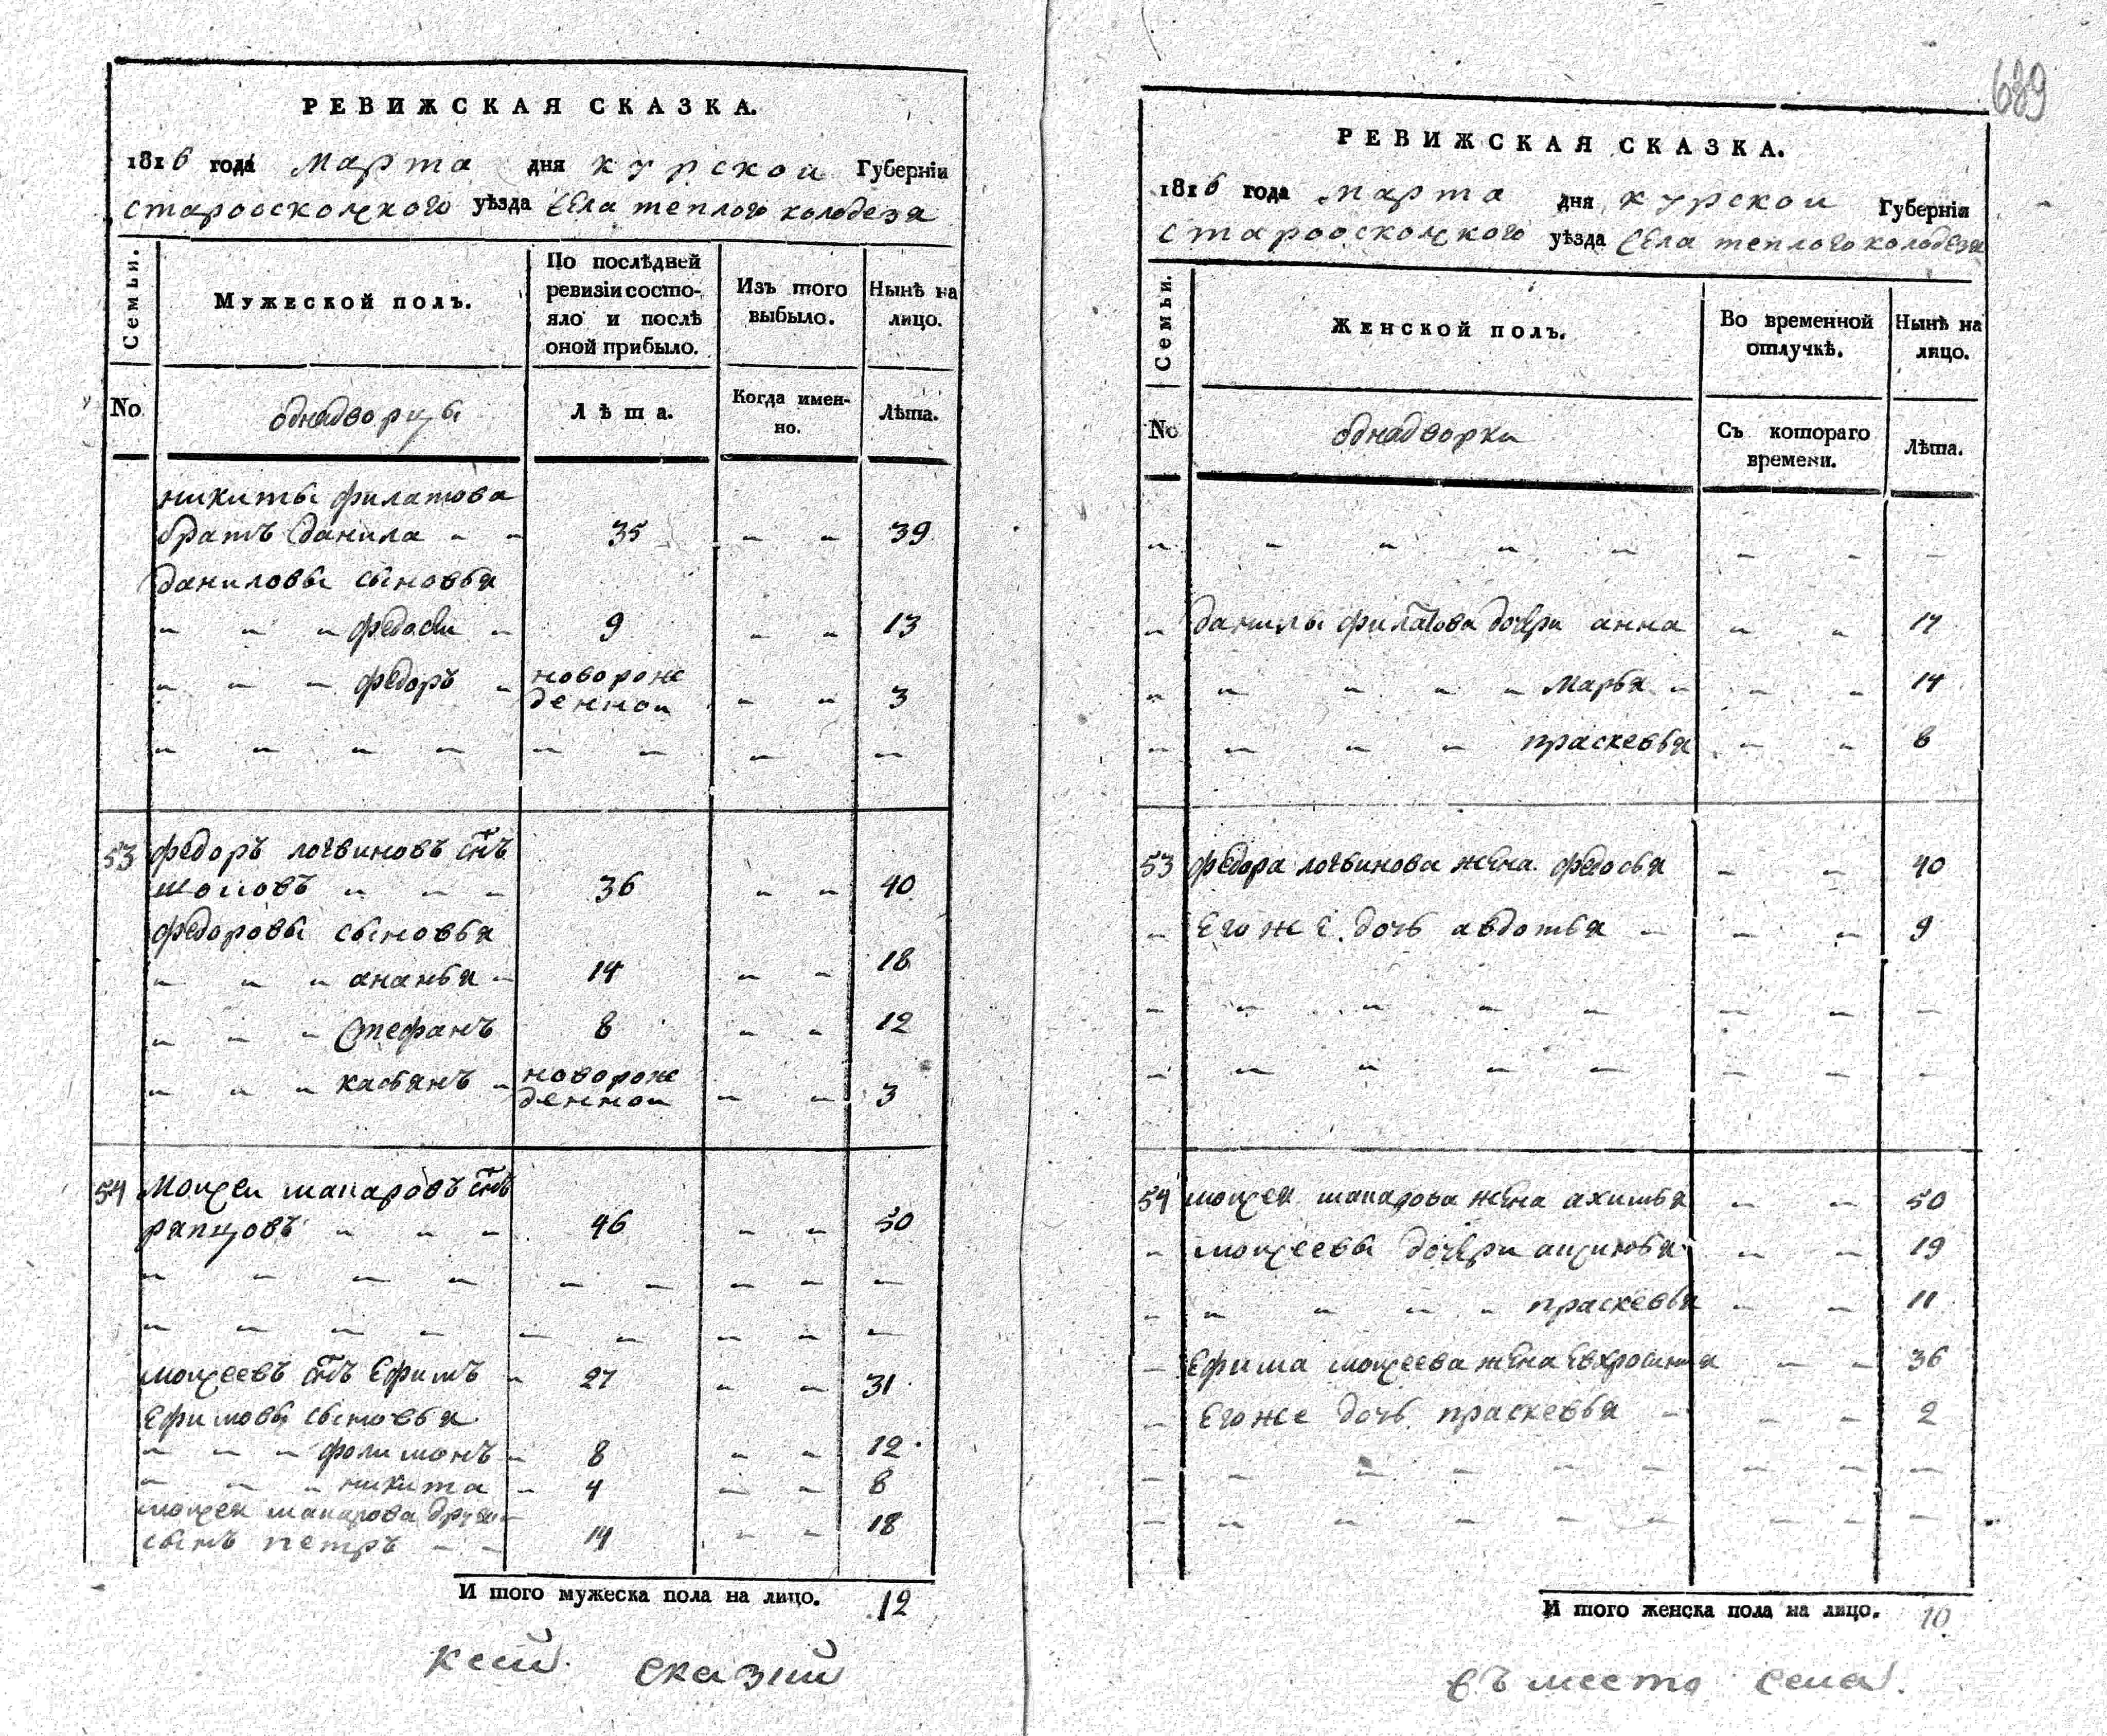 689
РЕВИЖСКАЯ СКАЗКА.
1816 года Марта дня курской Губерніи
староосколского уѣзда села теплого колодезя
Семьи.
Мужеской полъ.
По послѣдней ревизіи состояло и послѣ оной прибыло.
Изъ того выбыло.
Нынѣ на лицо.
No
однадворцы
Лѣта.
Когда именно.
Лѣта.
никиты филатова
братъ данила 35 39
даниловы сыновья
федосеи 9 13
федоръ новорож денной 3
53 федоръ логвиновъ снъ
36 40
федоровы сыновья
ананья 14 18
стефанъ 8 12
касьянъ новорож денной 3
54 Мойсеи макаровъ снъ
46 50
мойсеевъ снъ Ефимъ 27 31
Ефимовы сыновья
фолимонъ 8 12
никита 4 8
мойсея макарова другой
сынъ петръ 14 18
И того мужеска пола на лицо. 12
сказки
РЕВИЖСКАЯ СКАЗКА.
1816 года марта дня курской Губерніи
староосколского уѣзда села теплого колодезя
Семьи.
Женской полъ.
Во временной отлучкѣ.
Нынѣ на лицо.
No
однадворки
Съ котораго времени.
Лѣта.
данилы филатова дочери анна 17
Марья 14
праскевья 8
53 федора логвинова жена федосья 40
Его же дочь авдотья 9
54 мойсея макарова жена 50
мойсеевы дочери 19
праскевья 11
Ефима мойсеева жена Евхросинья 36
Его же дочь праскевья 2
И того женска пола на лицо. 10
въместо села